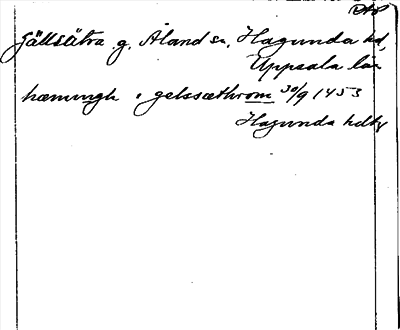 DAP
Gällsätra g. Åland sn, Hagunda hd,
Uppsala län
hæmingh i gelssæthrom 30/9 1453
Hagunda hdbr